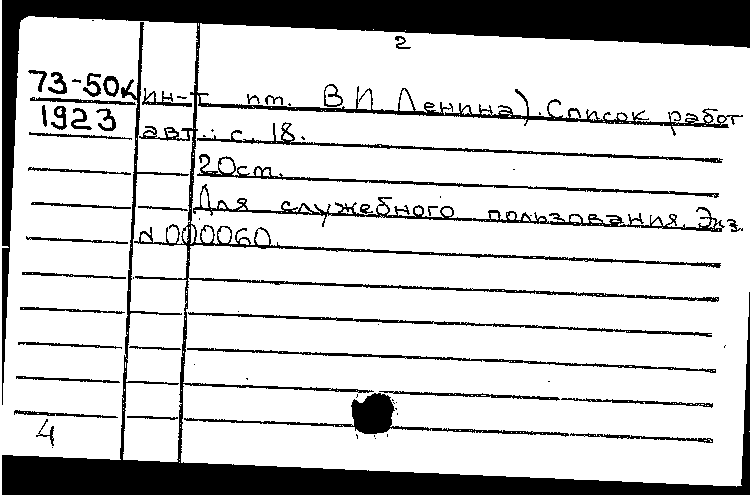 2
73-50к ин-т им. В.И. Ленина). Список работ
1923 авт.: с. 18.
20см.
Для служебного пользования. Экз.
N 000060.
4